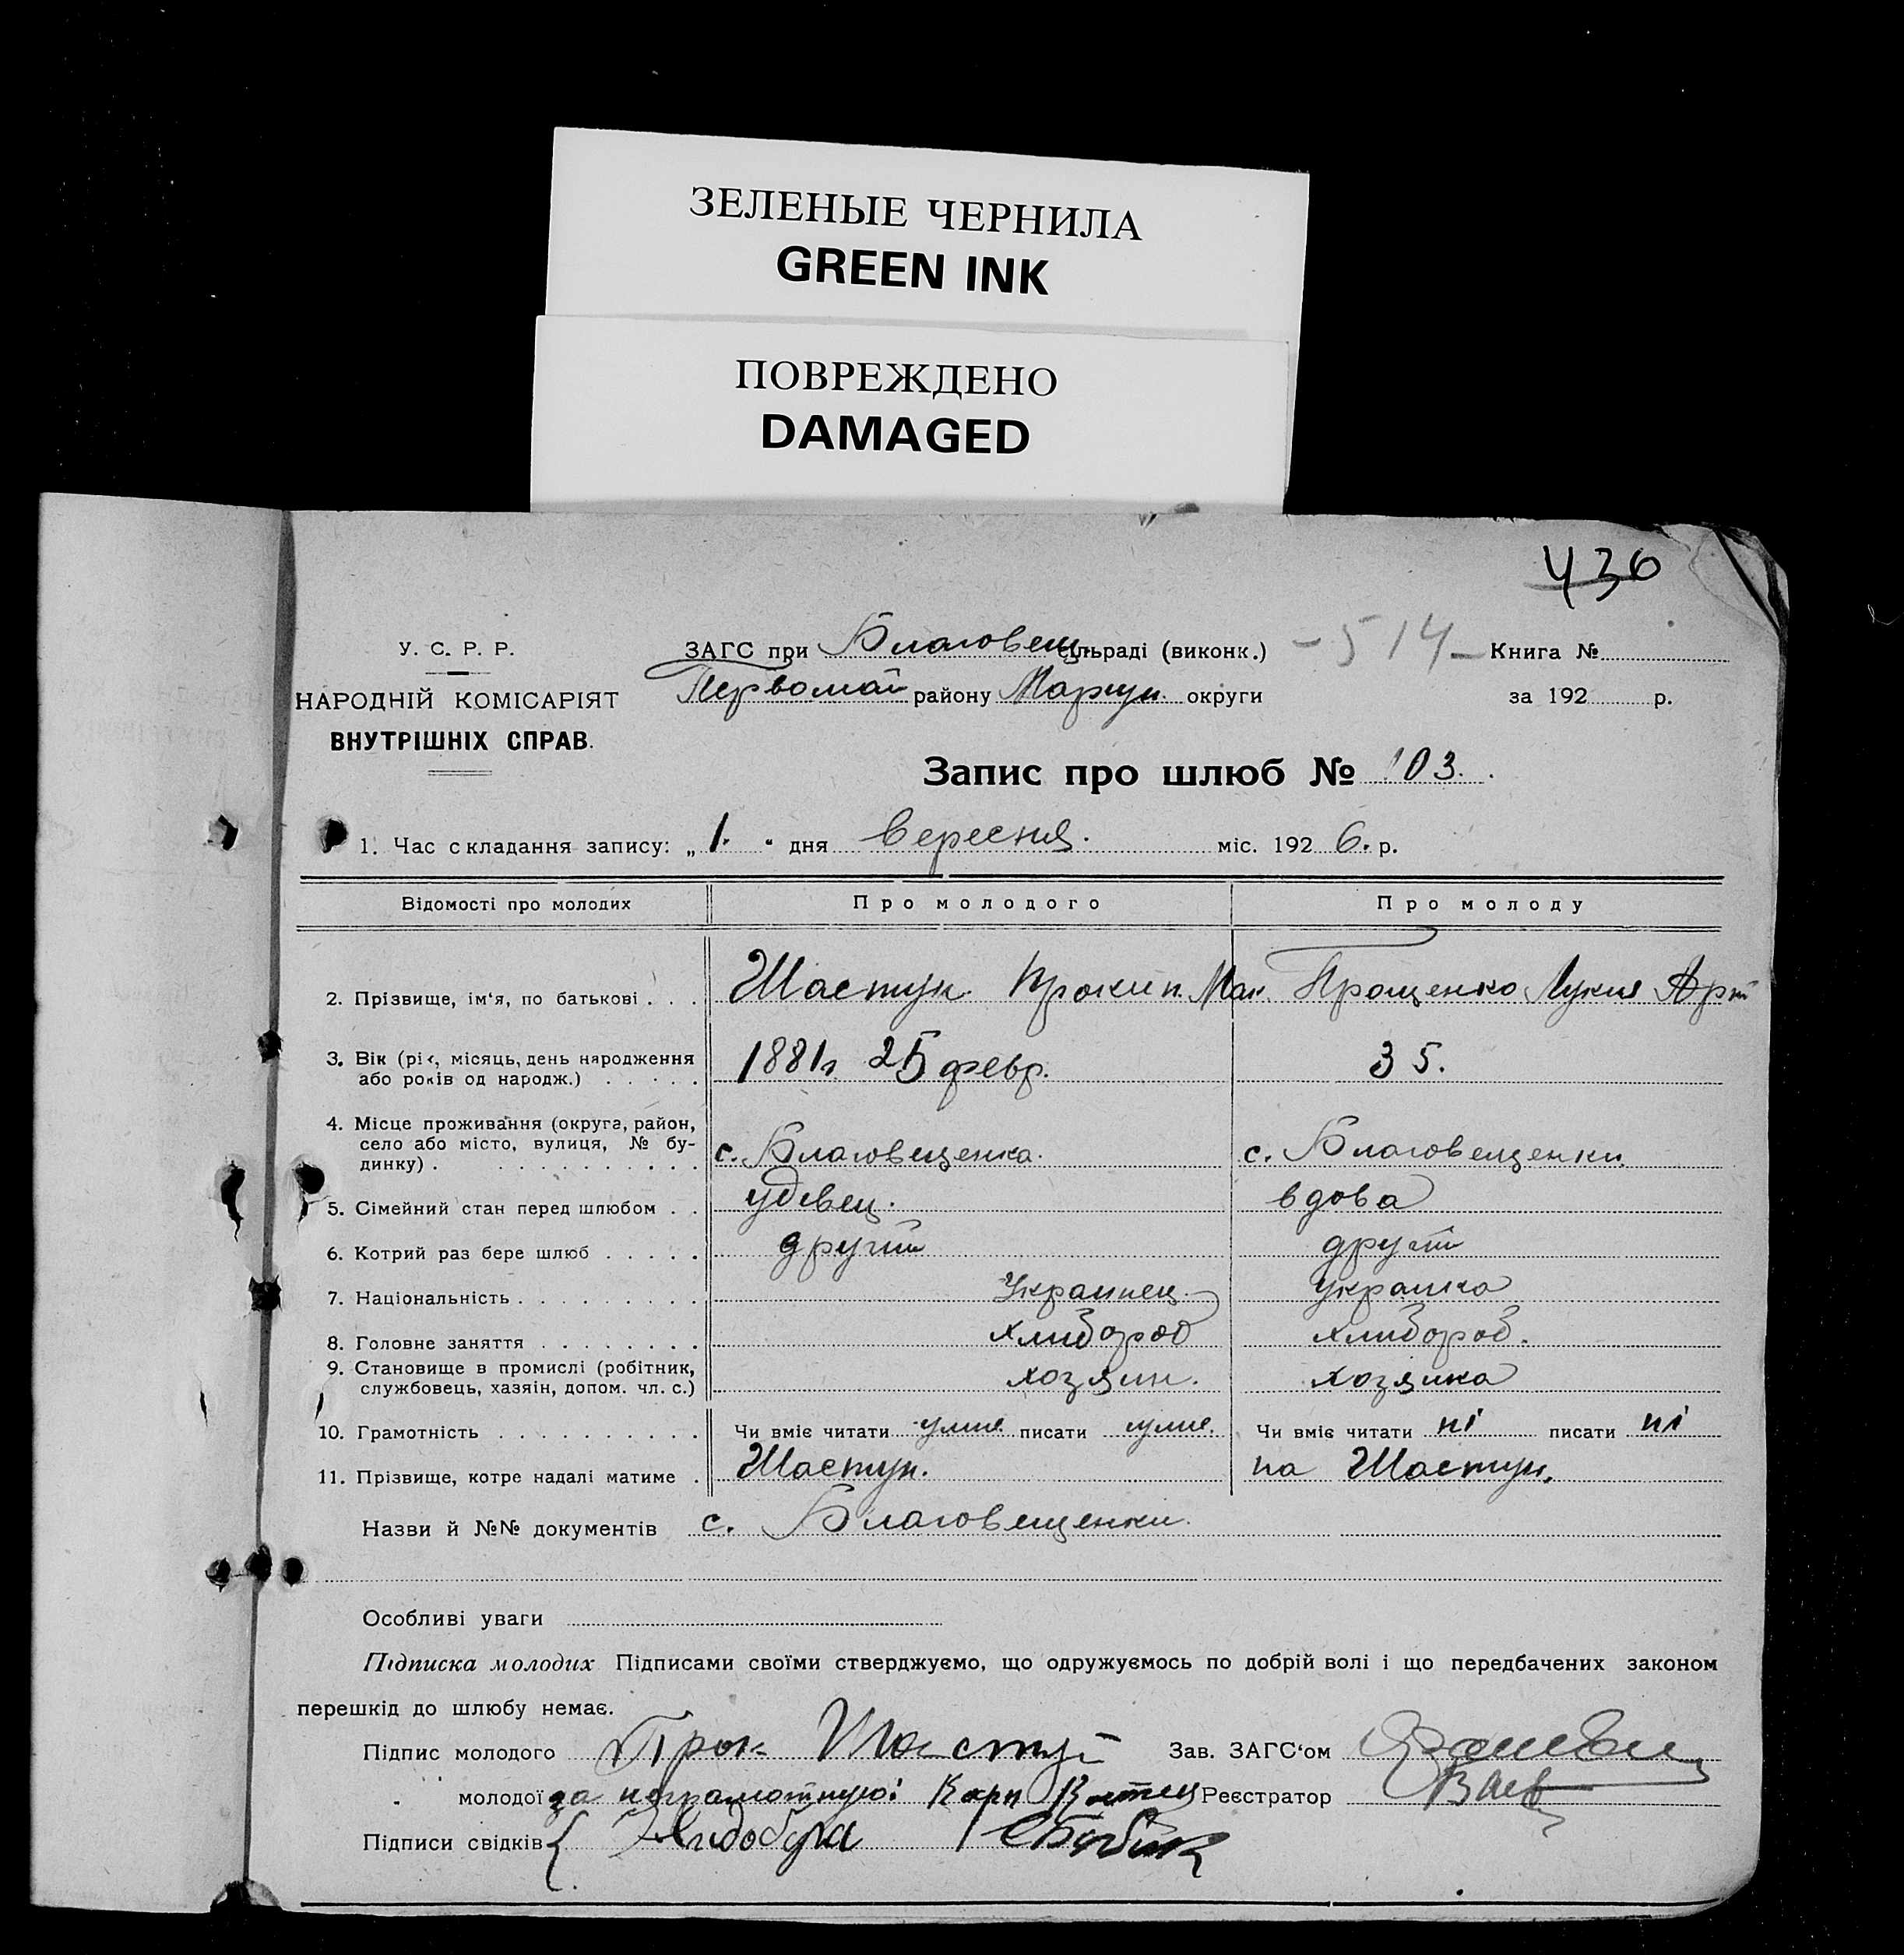 ЗЕЛЕНЫЕ ЧЕРНИЛА
GREEN INK
ПОВРЕЖДЕНО
DAMAGED
436
У. С. Р. Р.
НАРОДНІЙ КОМІСАРІЯТ
ВНУТРІШНІХ СПРАВ.
ЗАГС при Благовещ. сільраді (виконк.) - 514 - Книга №
Первомай району Мариуп. округи за 192 р.
Запис про шлюб № 103.
1. Час складання запису: „ 1. “ дня вересня. міс. 192 6. р.
Відомості про молодих Про молодого Про молоду
2. Прізвище, ім'я, по батькові . . . Шастун Прокип. Мак. Прощенко Лукия Арт
3. Вік (рік, місяць, день народження
або років од народж.) . . . . . 1881г. 25 февр. 35.
4. Місце проживання (округа, район,
село або місто, вулиця, № бу-
динку) . . . . . . . . . . . с. Благовещенка. с. Благовещенки
5. Сімейний стан перед шлюбом . . удівец. вдова
6. Котрий раз бере шлюб . . . . . другий другий
7. Національність . . . . . . . . . Украинец украинка
8. Головне заняття . . . . . . . . хлибороб хлибороб.
9. Становище в промислі (робітник,
службовець, хазяін, допом. чл. с.) хозяин. хозяика
10. Грамотність . . . . . . . . . . Чи вміє читати умие писати умие. Чи вміє читати ні писати ні
11. Прізвище, котре надалі матиме . Шастун. на Шастун.
Назви й №№ документів с. Благовещенки.
Особливі уваги
Підписка молодих Підписами своїми стверджуємо, що одружуємось по добрій волі і що передбачених законом
перешкід до шлюбу немає.
Підпис молодого Прок Шастун Зав. ЗАГС'ом
молодої за неграмотную: Карп Реєстратор
Підписи свідків